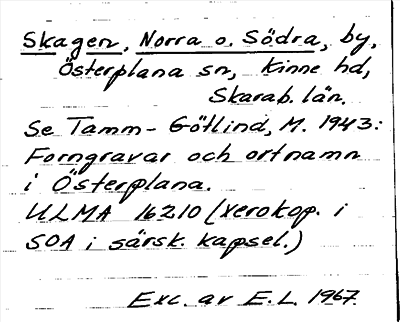 Skagen, Norra o. Södra, by,
Österplana sn, Kinne hd,
Skarab. län.
Se Tamm-Götlind, M. 1943:
Forngravar och ortnamn
i Österplana.
ULMA 16210 (xerokop. i
SOA i särsk. kapsel.)
Exc. av E.L. 1967.